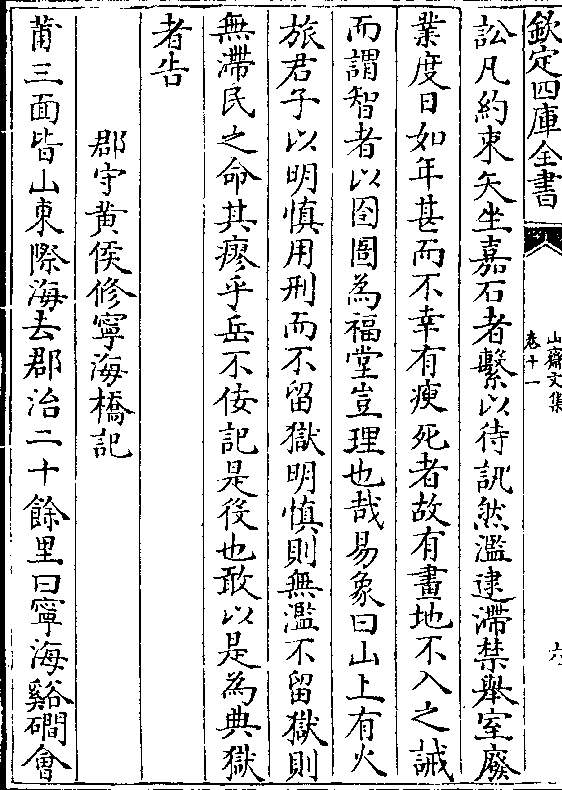 欽定四庫全書
山齋文集
卷十一
六
訟凡約束矢坐嘉石者繫以待訊然濫逮滯禁舉室廢
業度日如年甚而不幸有瘐死者故有畫地不入之誡
而謂智者以囹圄為福堂豈理也哉易象曰山上有火
旅君子以明慎用刑而不留獄明慎則無濫不留獄則
無滯民之命其瘳乎岳不佞記是役也敢以是為典獄
者告
郡守黃侯修寧海橋記
莆三面皆山東際海去郡治二十餘里曰寧海谿磵會